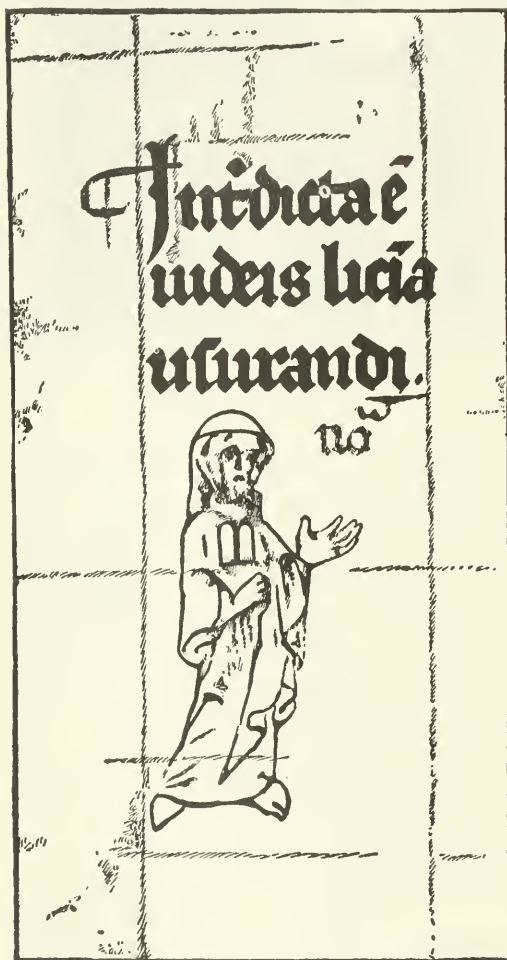 Int̄dicta ē
iudeis licīa
usurandi.
noᵃ